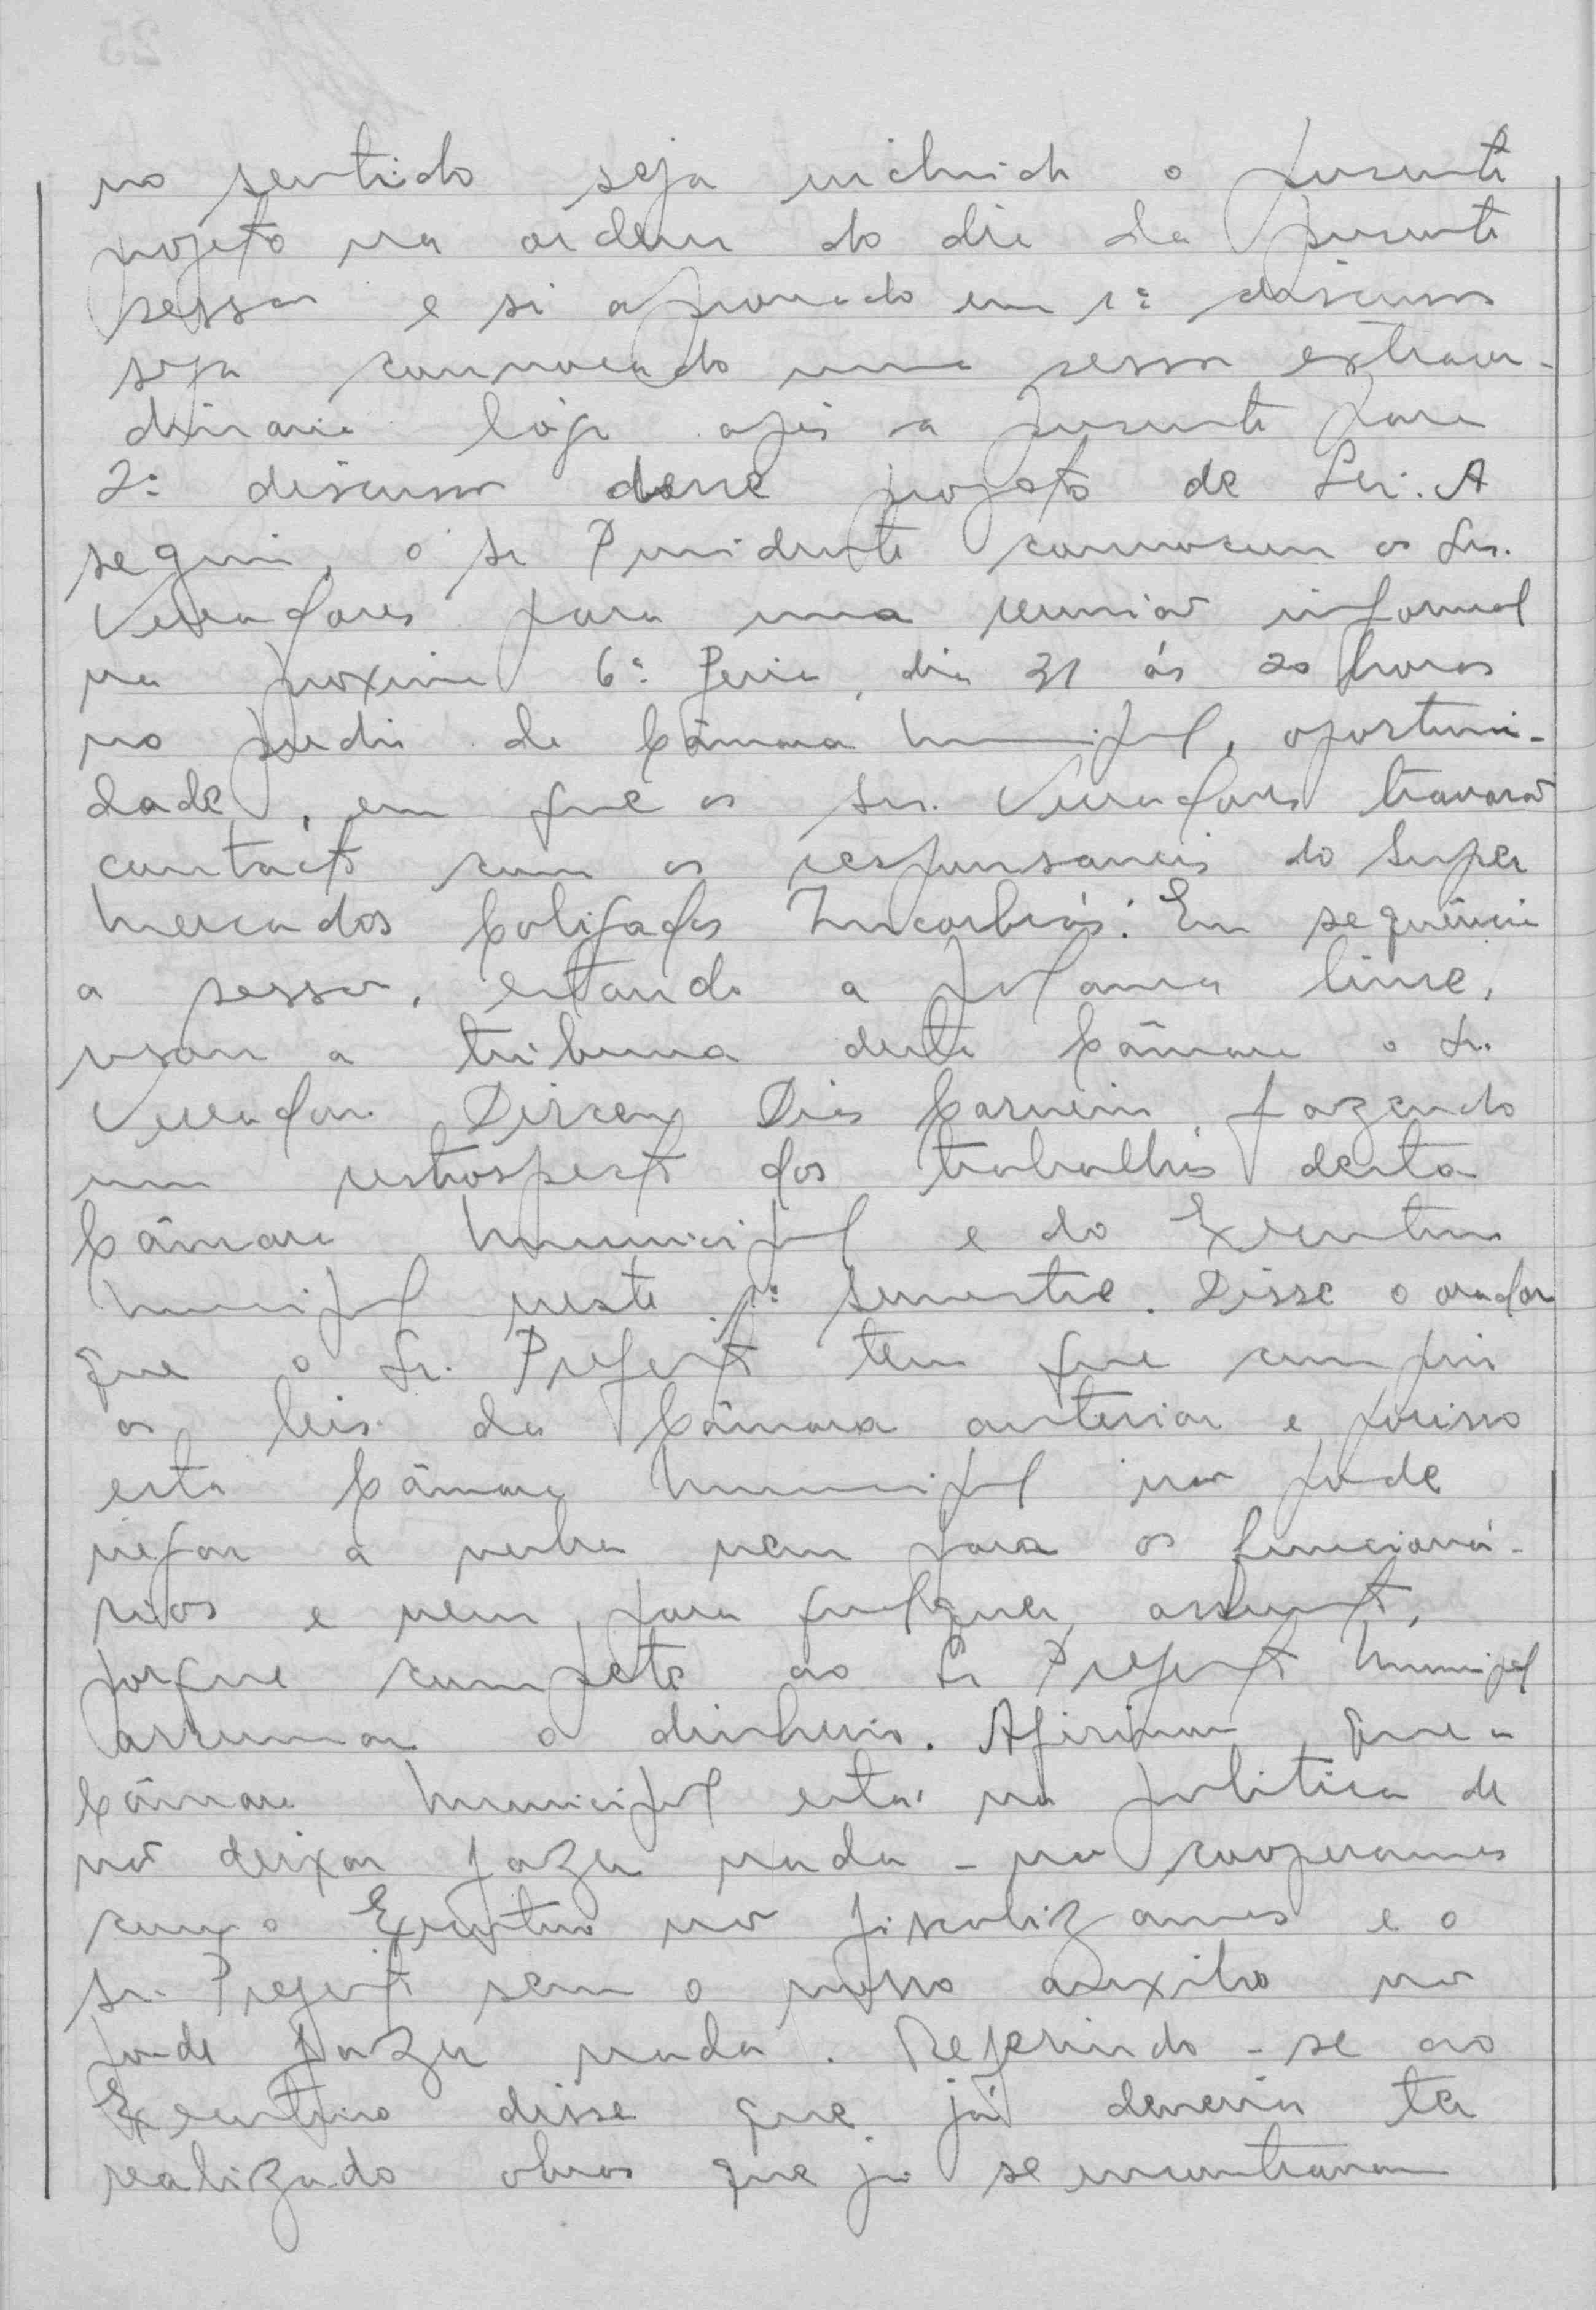 no sentido seja incluido o presente
projeto na ordem do dia da presente
sessão e si aprovado em 1ª discussão
seja convocado uma sessão extraor-
dinaria lógo após a presente para
2ª discussão desse projeto de Lei. A
seguir, o Sr Presidente convocou os Srs.
Vereadores para uma reunião informal
na proxima 6ª feira, dia 31 ás 20 horas
no predio da Câmara Municipal, oportuni-
dade, em que os Srs. Vereadores travarão
contacto com os responsaveis do Super
Mercados Coligados Incorbrás. Em sequência
a sessão, estando a palavra livre,
usou a tribuna desta Câmara o Sr.
Vereador Dirceu Dias Carneiro, fazendo
um restrospecto dos trabalhos desta
Câmara Municipal e do Executivo
Municipal neste 1º semestre. Disse o orador
que o Sr. Prefeito tem que cumprir
as leis da Câmara anterior e porisso
esta Câmara Municipal não pode
negar a verba nem para os funcioná-
rios e nem para qualquer assunto,
porque compete ao Sr Prefeito Municipal
arrumar o dinheiro. Afirmou que a
Câmara Municipal está na politica de
não deixar fazer nada - não cooperamos
com o Executivo não fiscalizamos e o
Sr. Prefeito sem o nosso auxilio não
pode fazer nada. Referindo-se ao
Executivo disse que já deveria ter
realizado obras que já se encontravam